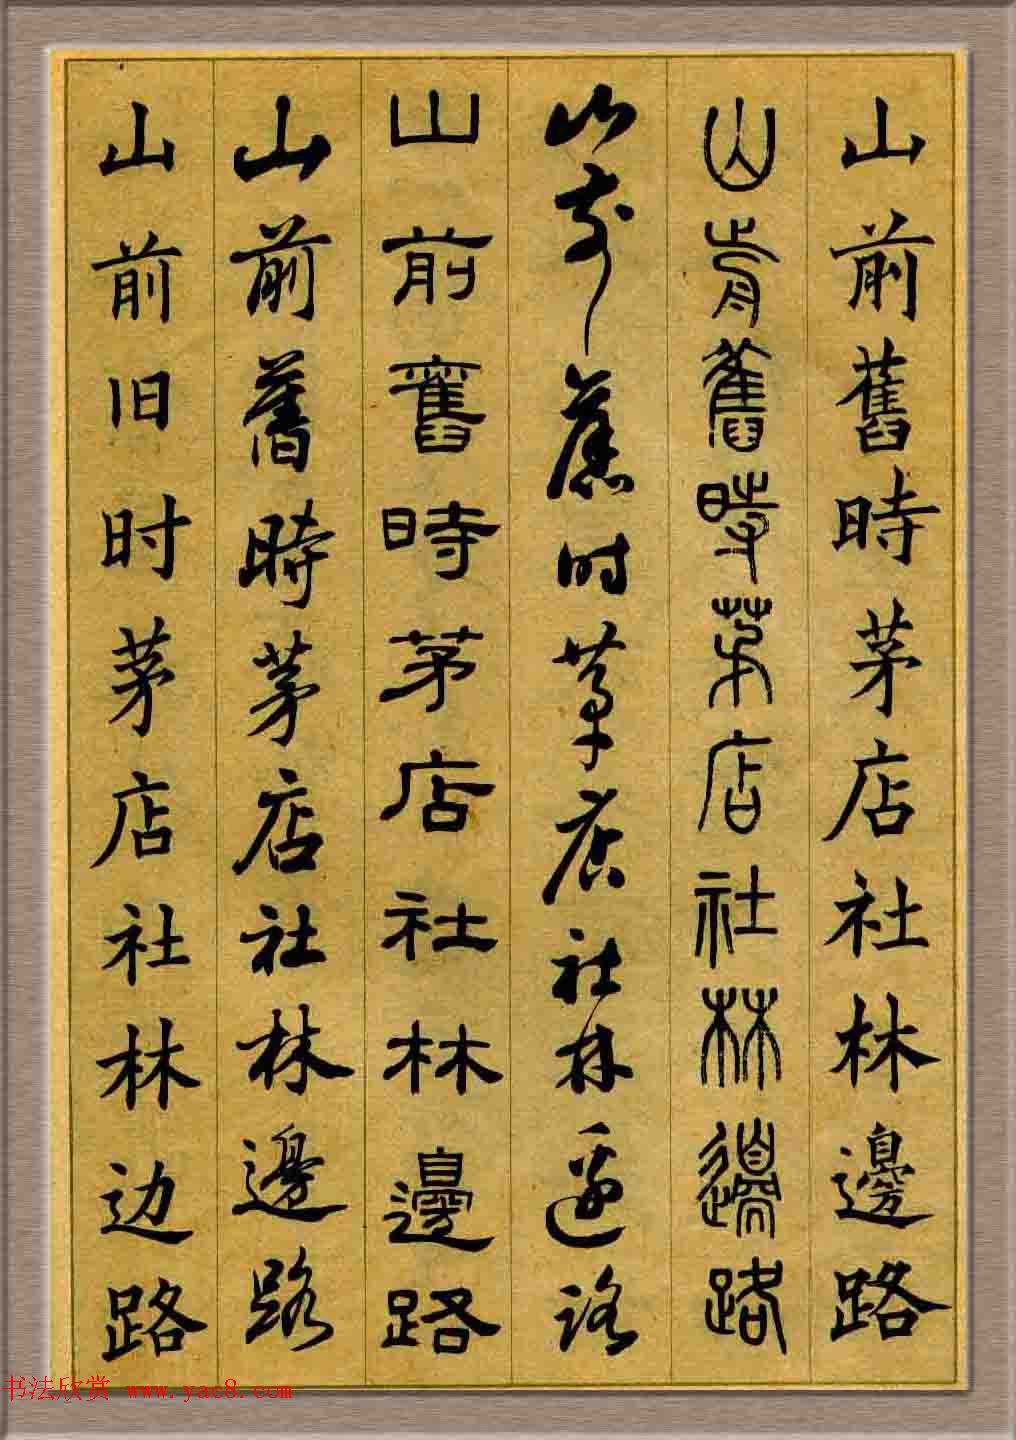 山前舊時茅店社林邊路
山前舊時茅店社林邊路
山前舊時茅店社林邊路
山前舊時茅店社林邊路
山前舊時茅店社林邊路
山前旧时茅店社林边路
书法欣赏 www.yac8.com